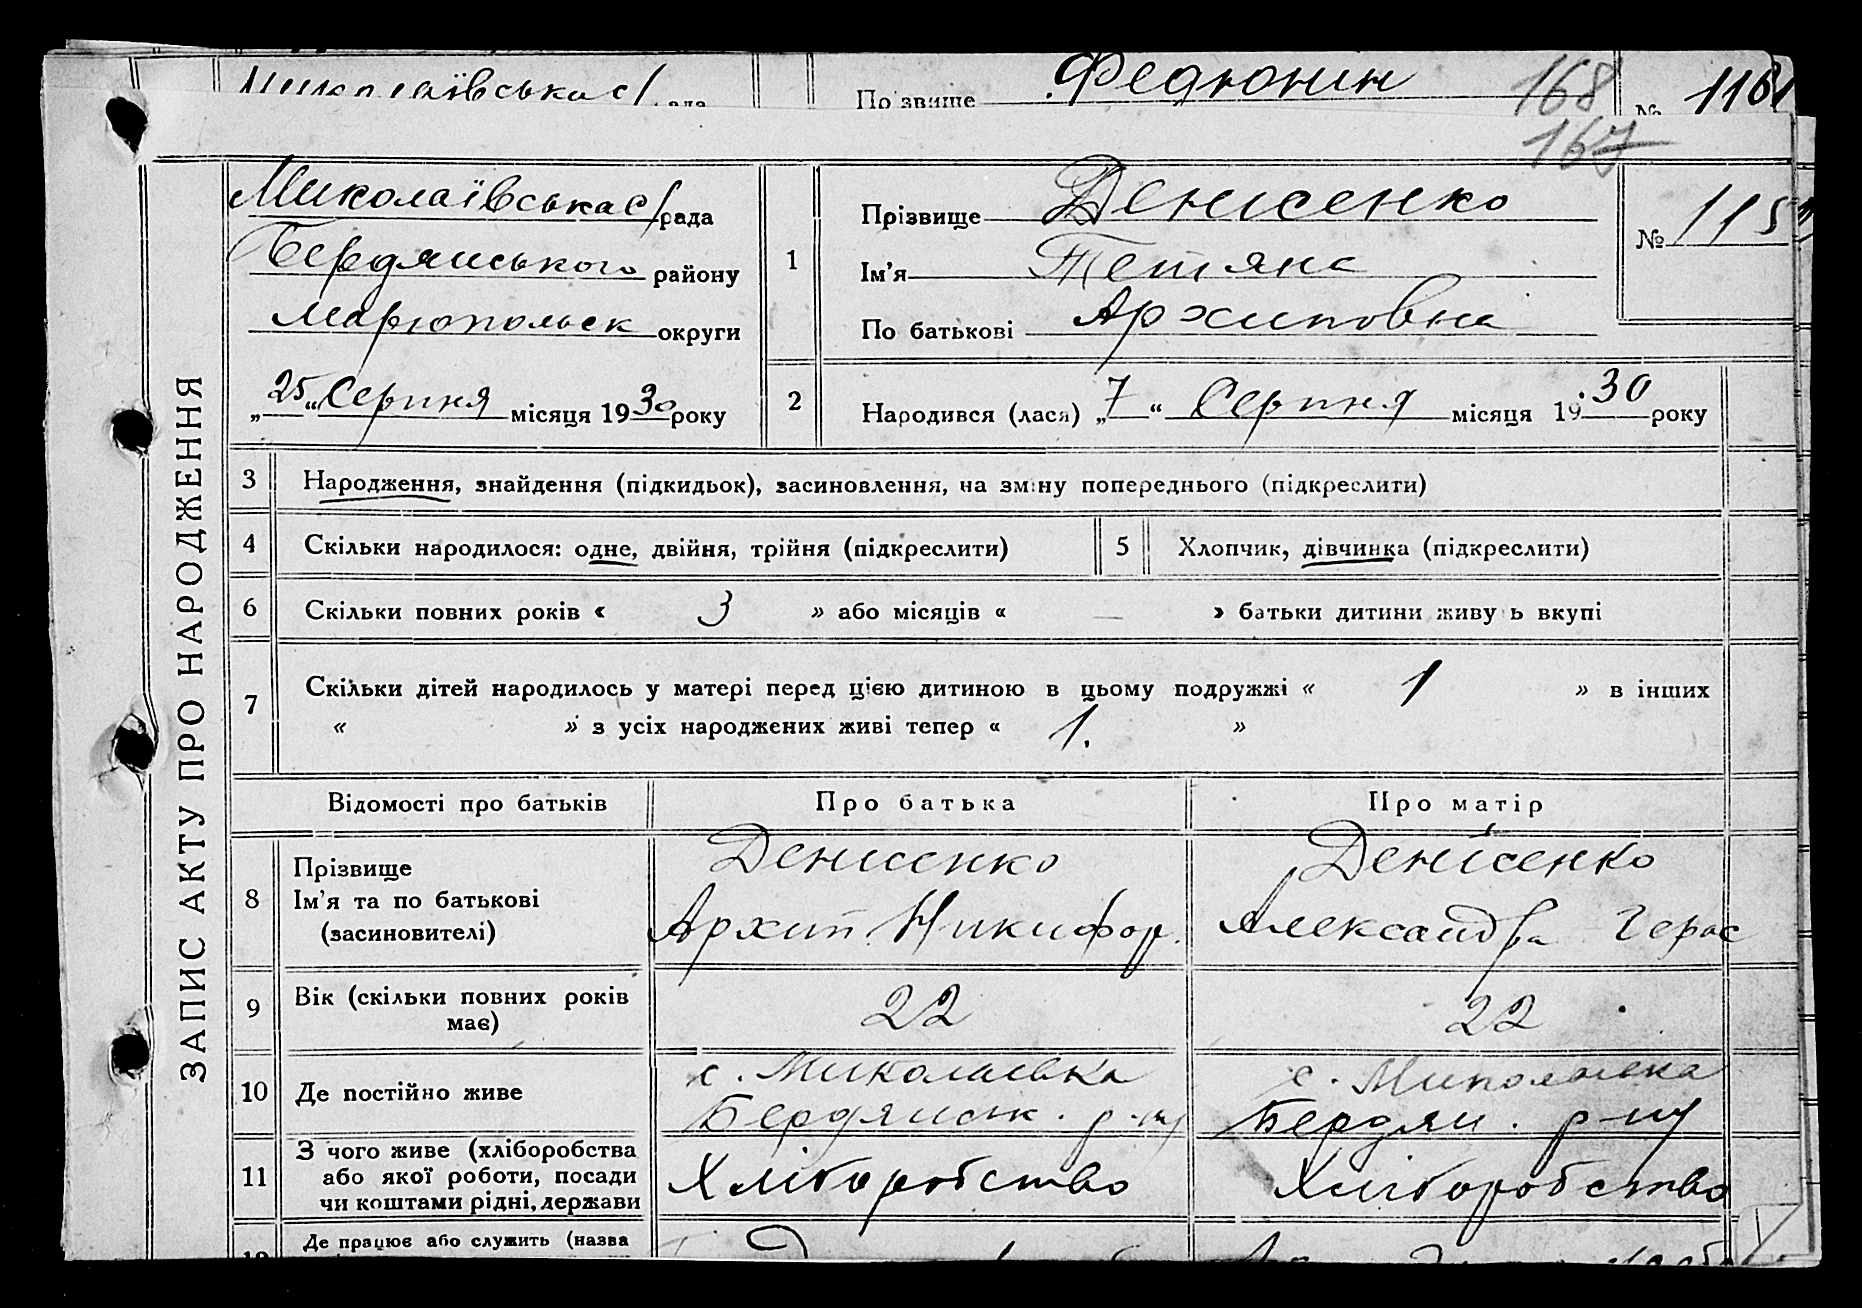 Миколаївська с/рада
По звище Федюнин
168
№ 1161
167
ЗАПИС АКТУ ПРО НАРОДЖЕННЯ
Миколаївська с/рада
Бердянського району
Маріюпольськ округи
„25“ Серпня місяця 1930 року
1
Прізвище Денисенко
Ім’я Тетяна
По батькові Архиповна
№ 115
2
Народився (лася) „7“ Серпня місяця 19.30 року
3 Народження, знайдення (підкидьок), засиновлення, на зміну попереднього (підкреслити)
4 Скільки народилося: одне, двійня, трійня (підкреслити)
5 Хлопчик, дівчинка (підкреслити)
6 Скільки повних років « 3 » або місяців « — » батьки дитини живуть вкупі
7 Скільки дітей народилось у матері перед цією дитиною в цьому подружжі « 1 » в інших
« » з усіх народжених живі тепер « 1. »
Відомості про батьків Про батька Про матір
8 Прізвище
Ім’я та по батькові
(засиновителі)
Денисенко
Архип Никифор.
Денісенко
Александра Герас
9 Вік (скільки повних років
має)
22
22
10 Де постійно живе
с. Миколаевка
Бердянськ. р-ну
с. Миколаевка
Бердян. р-ну
11 З чого живе (хліборобства
або якої роботи, посади
чи коштами рідні, держави
Хліборобство
Хліборобство
Де працює або служить (назва